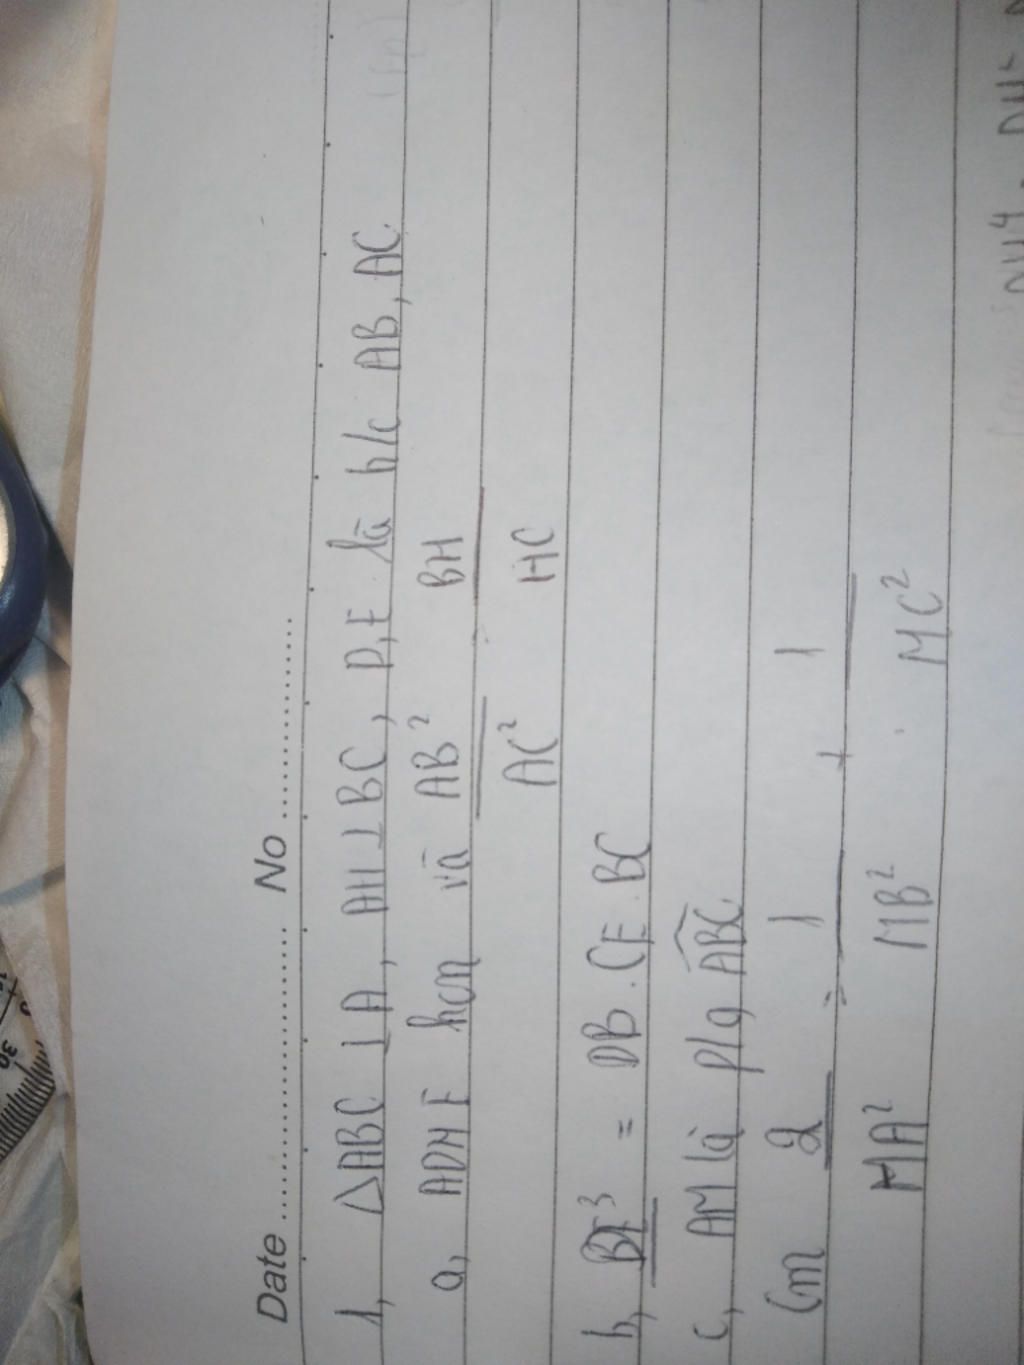 Date ........................ No ........................
1, △ABC ⊥A, AH⊥BC, D,E là h/c AB, AC.
a, ADHE hcn và AB² BH
AC² HC
b, = DB.CE.BC
c, AM là p/g ABC
Cm 2 = 1 + 1
MA² MB² MC²
30